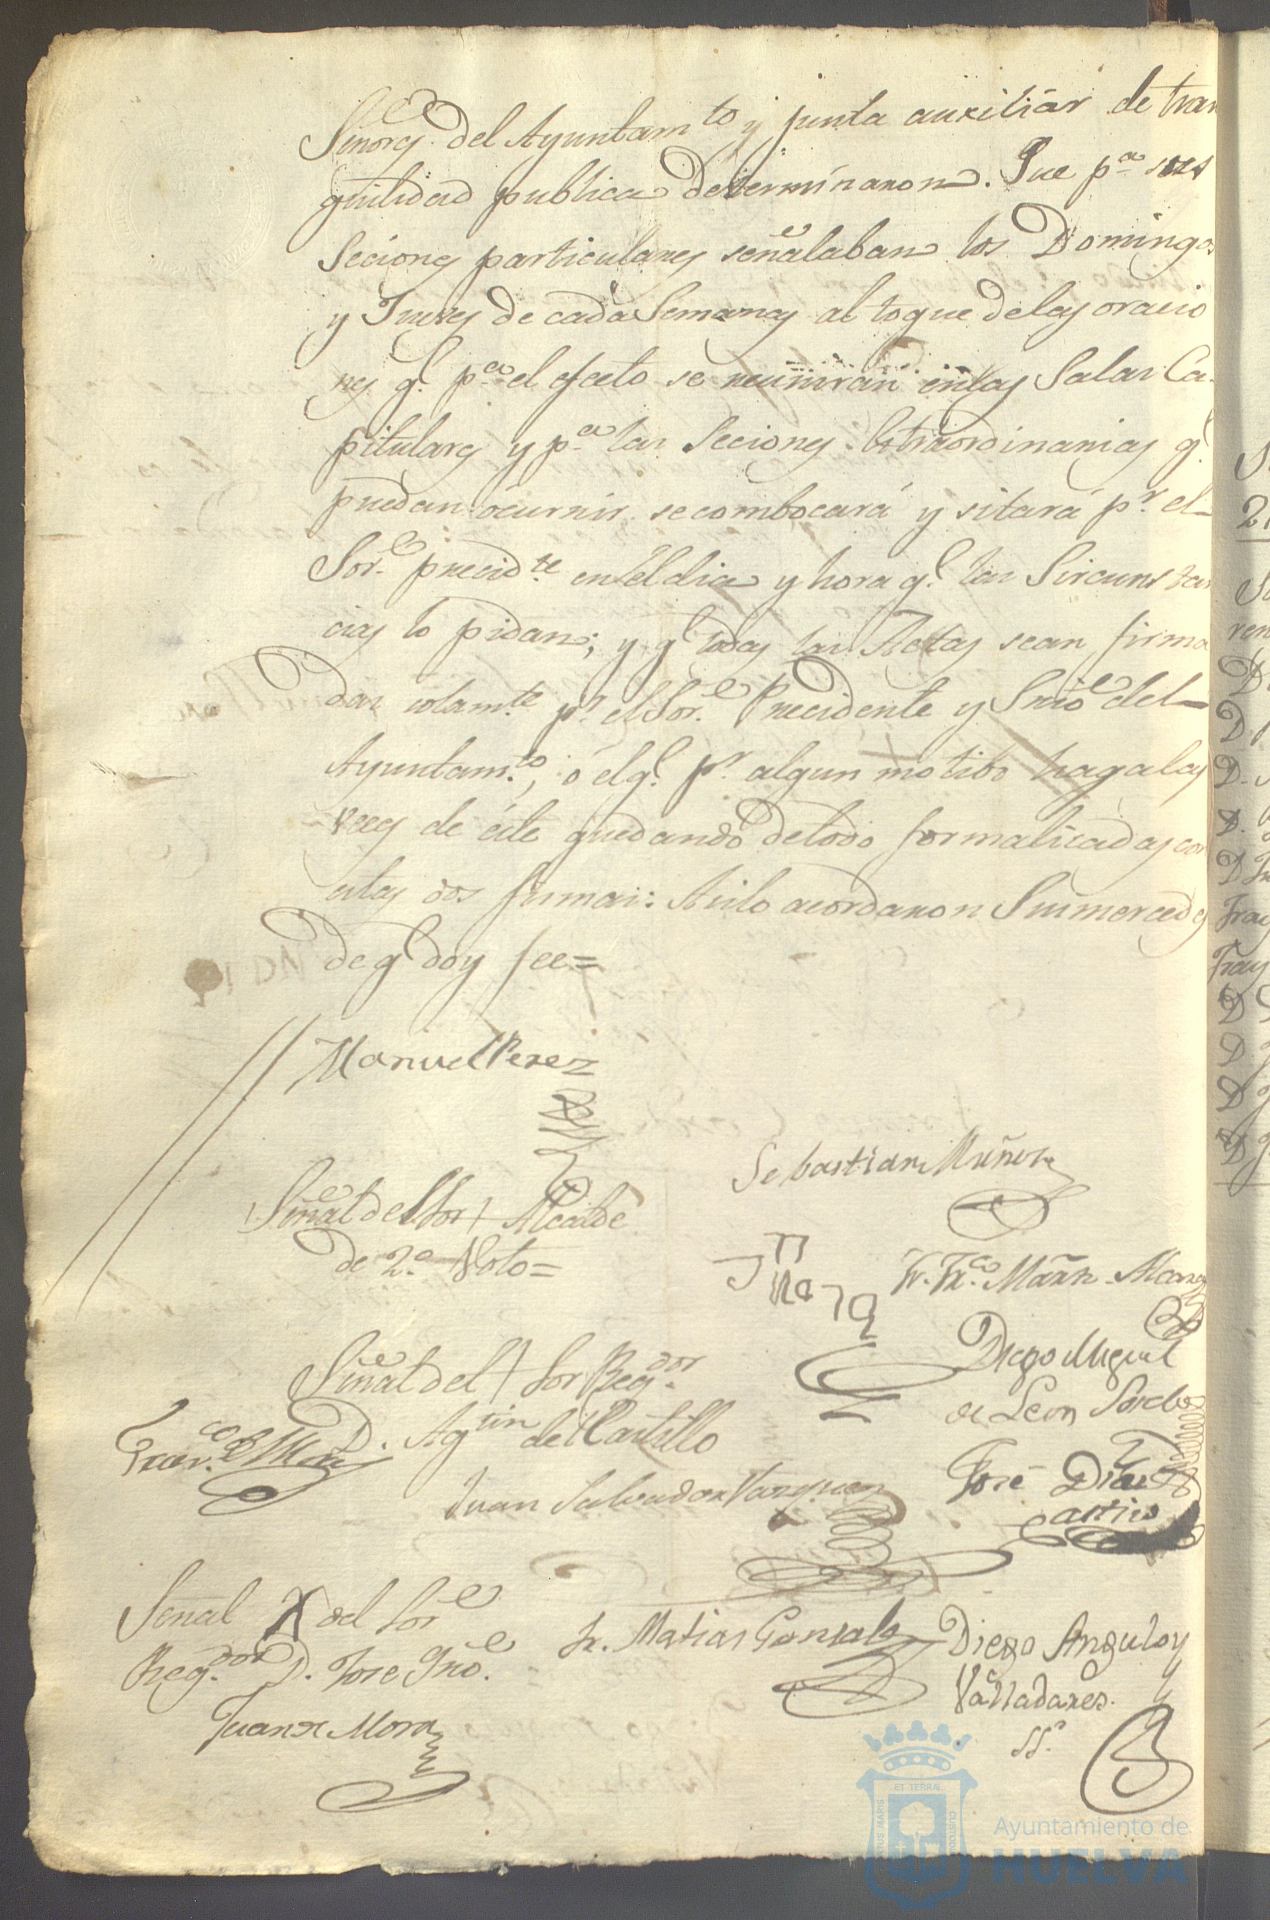 Señores del Ayuntamto y junta auxiliar de tran
quilidad publica determinaron. Que pa sus
Seciones particulares señalaban los Domingos
y Jueves de cada Semanas al toque de las oracio
nes q.e pa el efecto se reuniran en las Salas Ca-
pitulares y pa las Seciones Extraordinarias q.e
puedan ocurrir se combocará y sitará pr el
Sor. precidte en el dia y hora q.e las Sircunstan
cias lo pidan; y q.e todas las Actas sean firma
das solamte pr el Sor. Precidente y Srio del
Ayuntamto, ó el q.e pr algun motibo haga las
veces de éste quedando de todo formalisadas con
estas dos firmas: Asilo acordaron Sus mercedes
de q.e doy fee=
Manuel Perez
Sebastian Muñoz
Señal del Sor + Alcalde
de 2.o Voto=
Fr. Fr.co Marn.
Diego Miguel
de Leon Sordo
Señal del + Sor Reg.dor
D. Ag.tin del Castillo
Juan Salvador Vazquez
José Diaz
Señal X del Sor
Reg.dor D. Jose Gno.
Fr. Matias Gonsalez
Diego Angulo y
Valladares.
SS.o
Juan de Mora
ET TERRAE
CUSTODIA
PORTUS MARIS
Ayuntamiento de
HUELVA